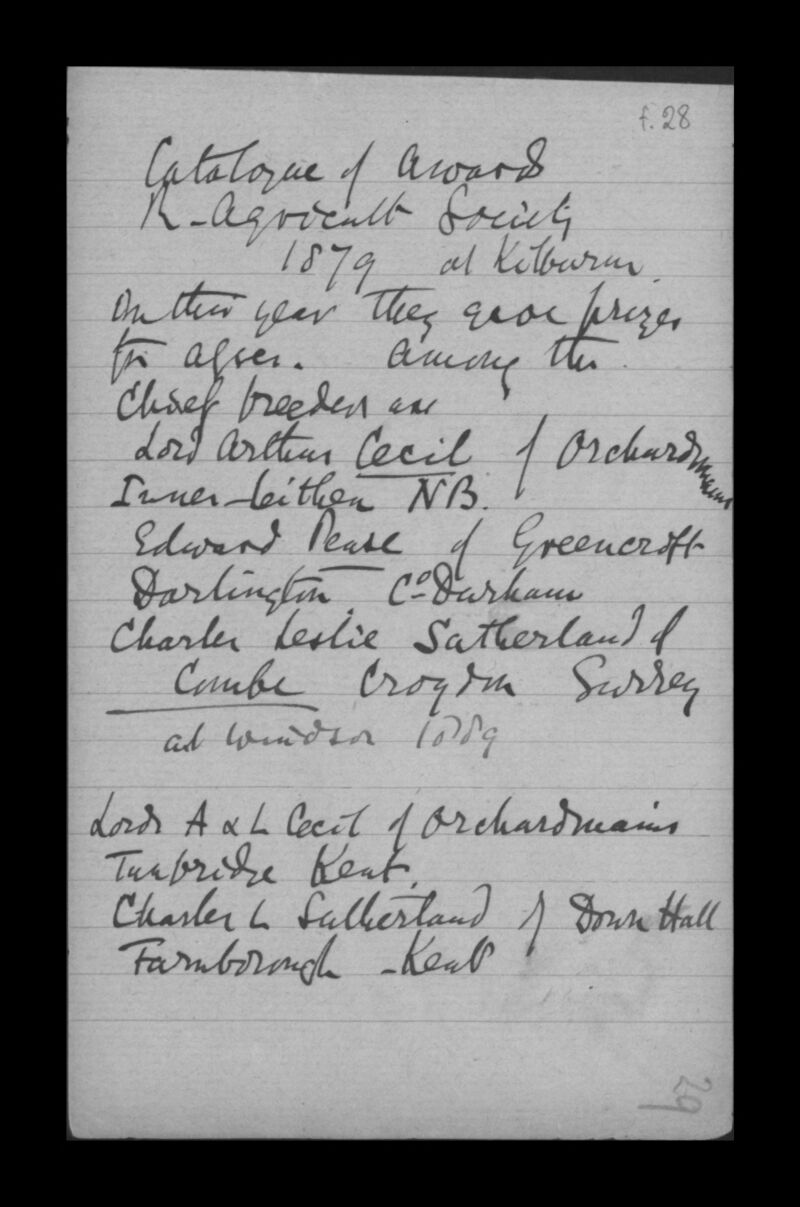 f. 28
Catalogue of Awards
R - Agricult Society
1879 at Kilburn.
On this year they gave prizes
for asses. Among the
Chief breeders are
Lord Arthur Cecil of Orchardmains
Inner-leithen NB.
Edward Pease of Greencroft
Darlington Co Durham
Charles Leslie Sutherland of
Combe Croydon Surrey
at Windsor 1889
Lords A & L Cecil of Orchardmains
Tunbridge Kent.
Charles L Sutherland of Down Hall
Farnborough - Kent
29